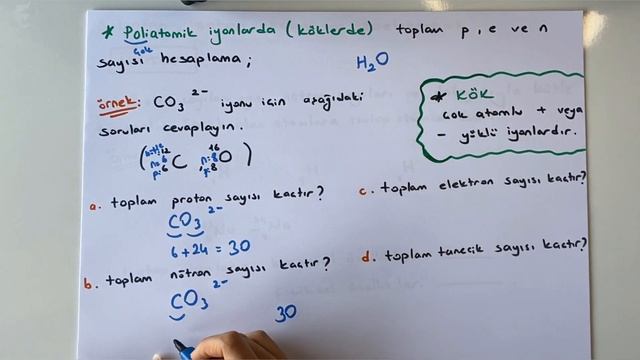 * Poliatomik iyonlarda (köklerde) toplam p, e ve n
çok
sayısı hesaplama;
H₂O
* KÖK
çok atomlu + veya
- yüklü iyonlardır.
örnek: CO₃²⁻ iyonu için aşağıdaki
soruları cevaplayın.
( 12 C, 16 O )
n=6 n=8
p=6 p=8
a. toplam proton sayısı kaçtır?
CO₃²⁻
6+24=30
b. toplam nötron sayısı kaçtır?
CO₃²⁻
30
c. toplam elektron sayısı kaçtır?
d. toplam tanecik sayısı kaçtır?